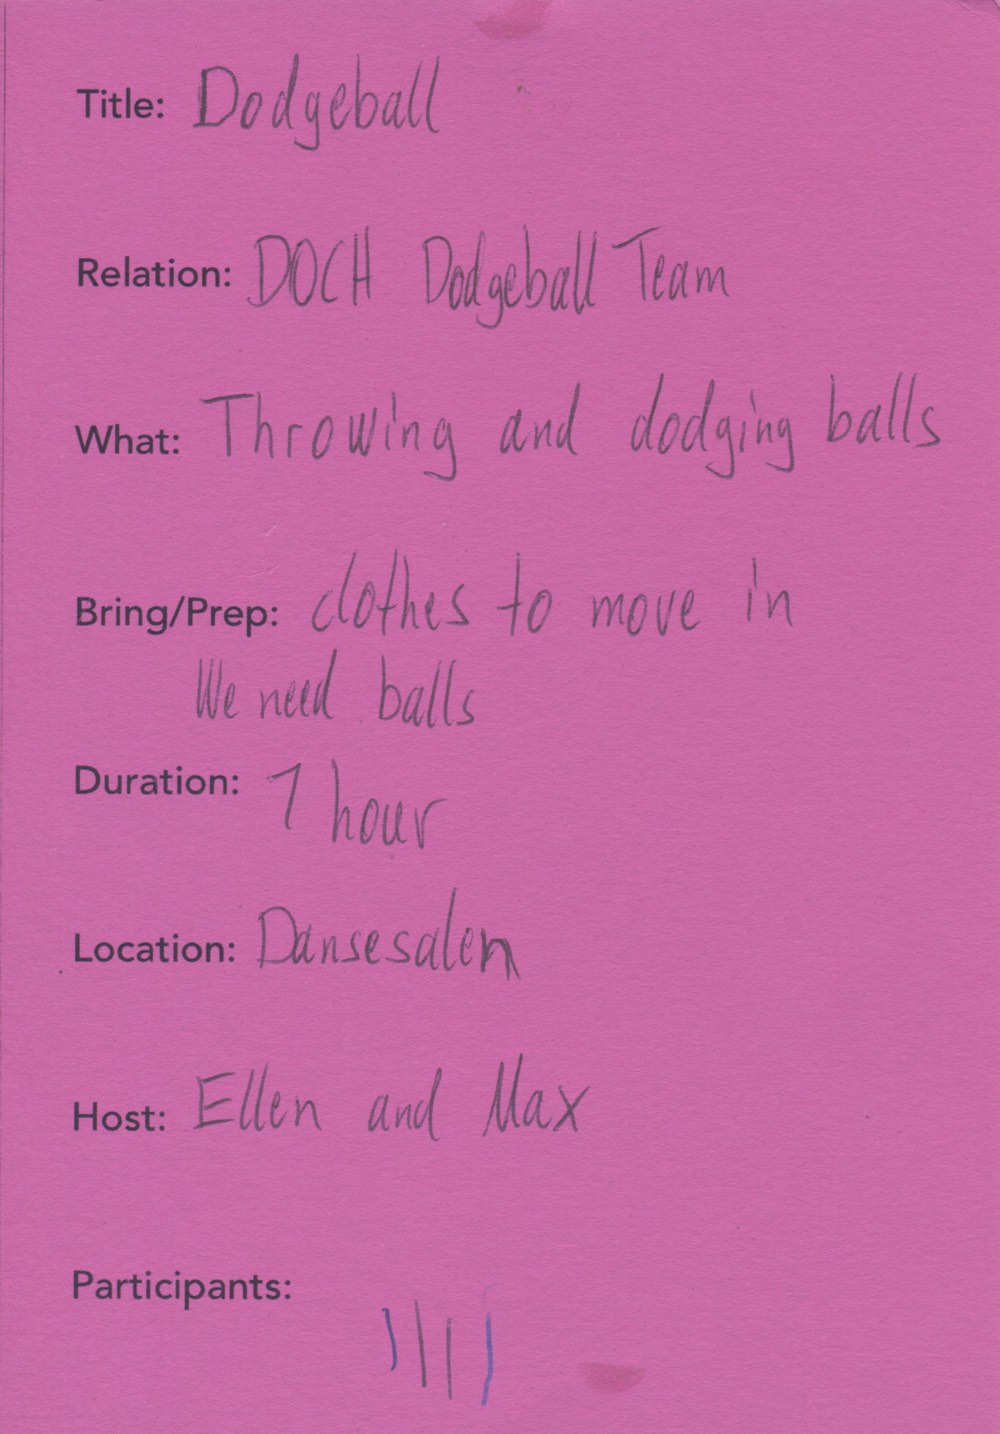 Title: Dodgeball
Relation: DOCH Dodgeball Team
What: Throwing and dodging balls
Bring/Prep: clothes to move in
We need balls
Duration: 1 hour
Location: Dansesalen
Host: Ellen and Max
Participants:
||||